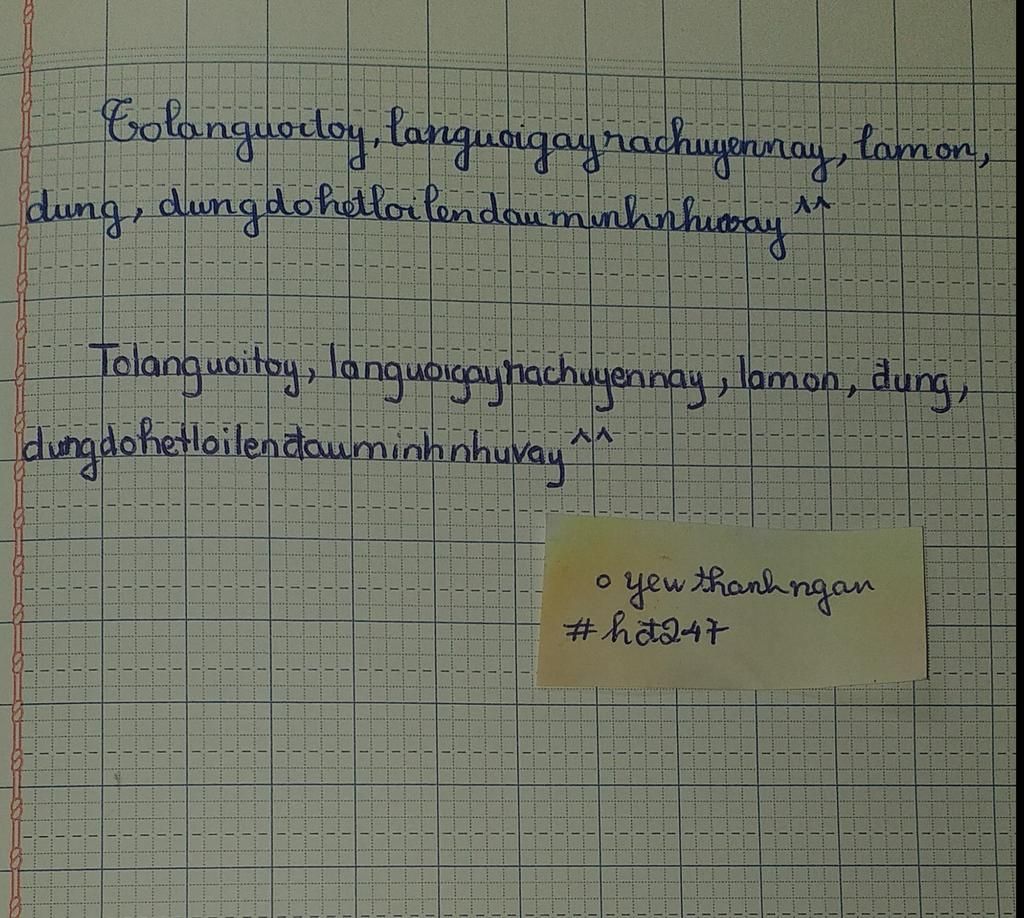 Tolanguoctoy, languoigayrachuyennay, lamon,
dung, dungdohetloilendauminhnhuvay ^^
Tolanguoitoy, languoigayrachuyennay, lamon, dung,
dungdohetloilendauminhnhuvay ^^
o yew thanhngan
# hđ247